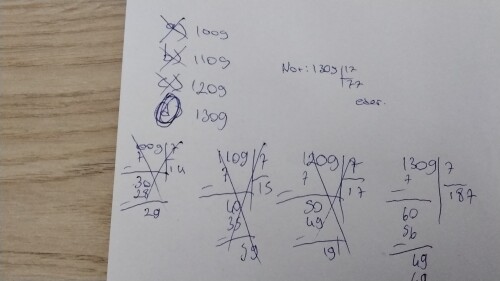 a) 1009
b) 1109
c) 1209
d) 1309
1309 17
77
1009 7
7 14
30
28
29
1109 7
7 15
40
35
59
1209 7
7 17
50
49
19
1309 7
7 187
60
56
49
49